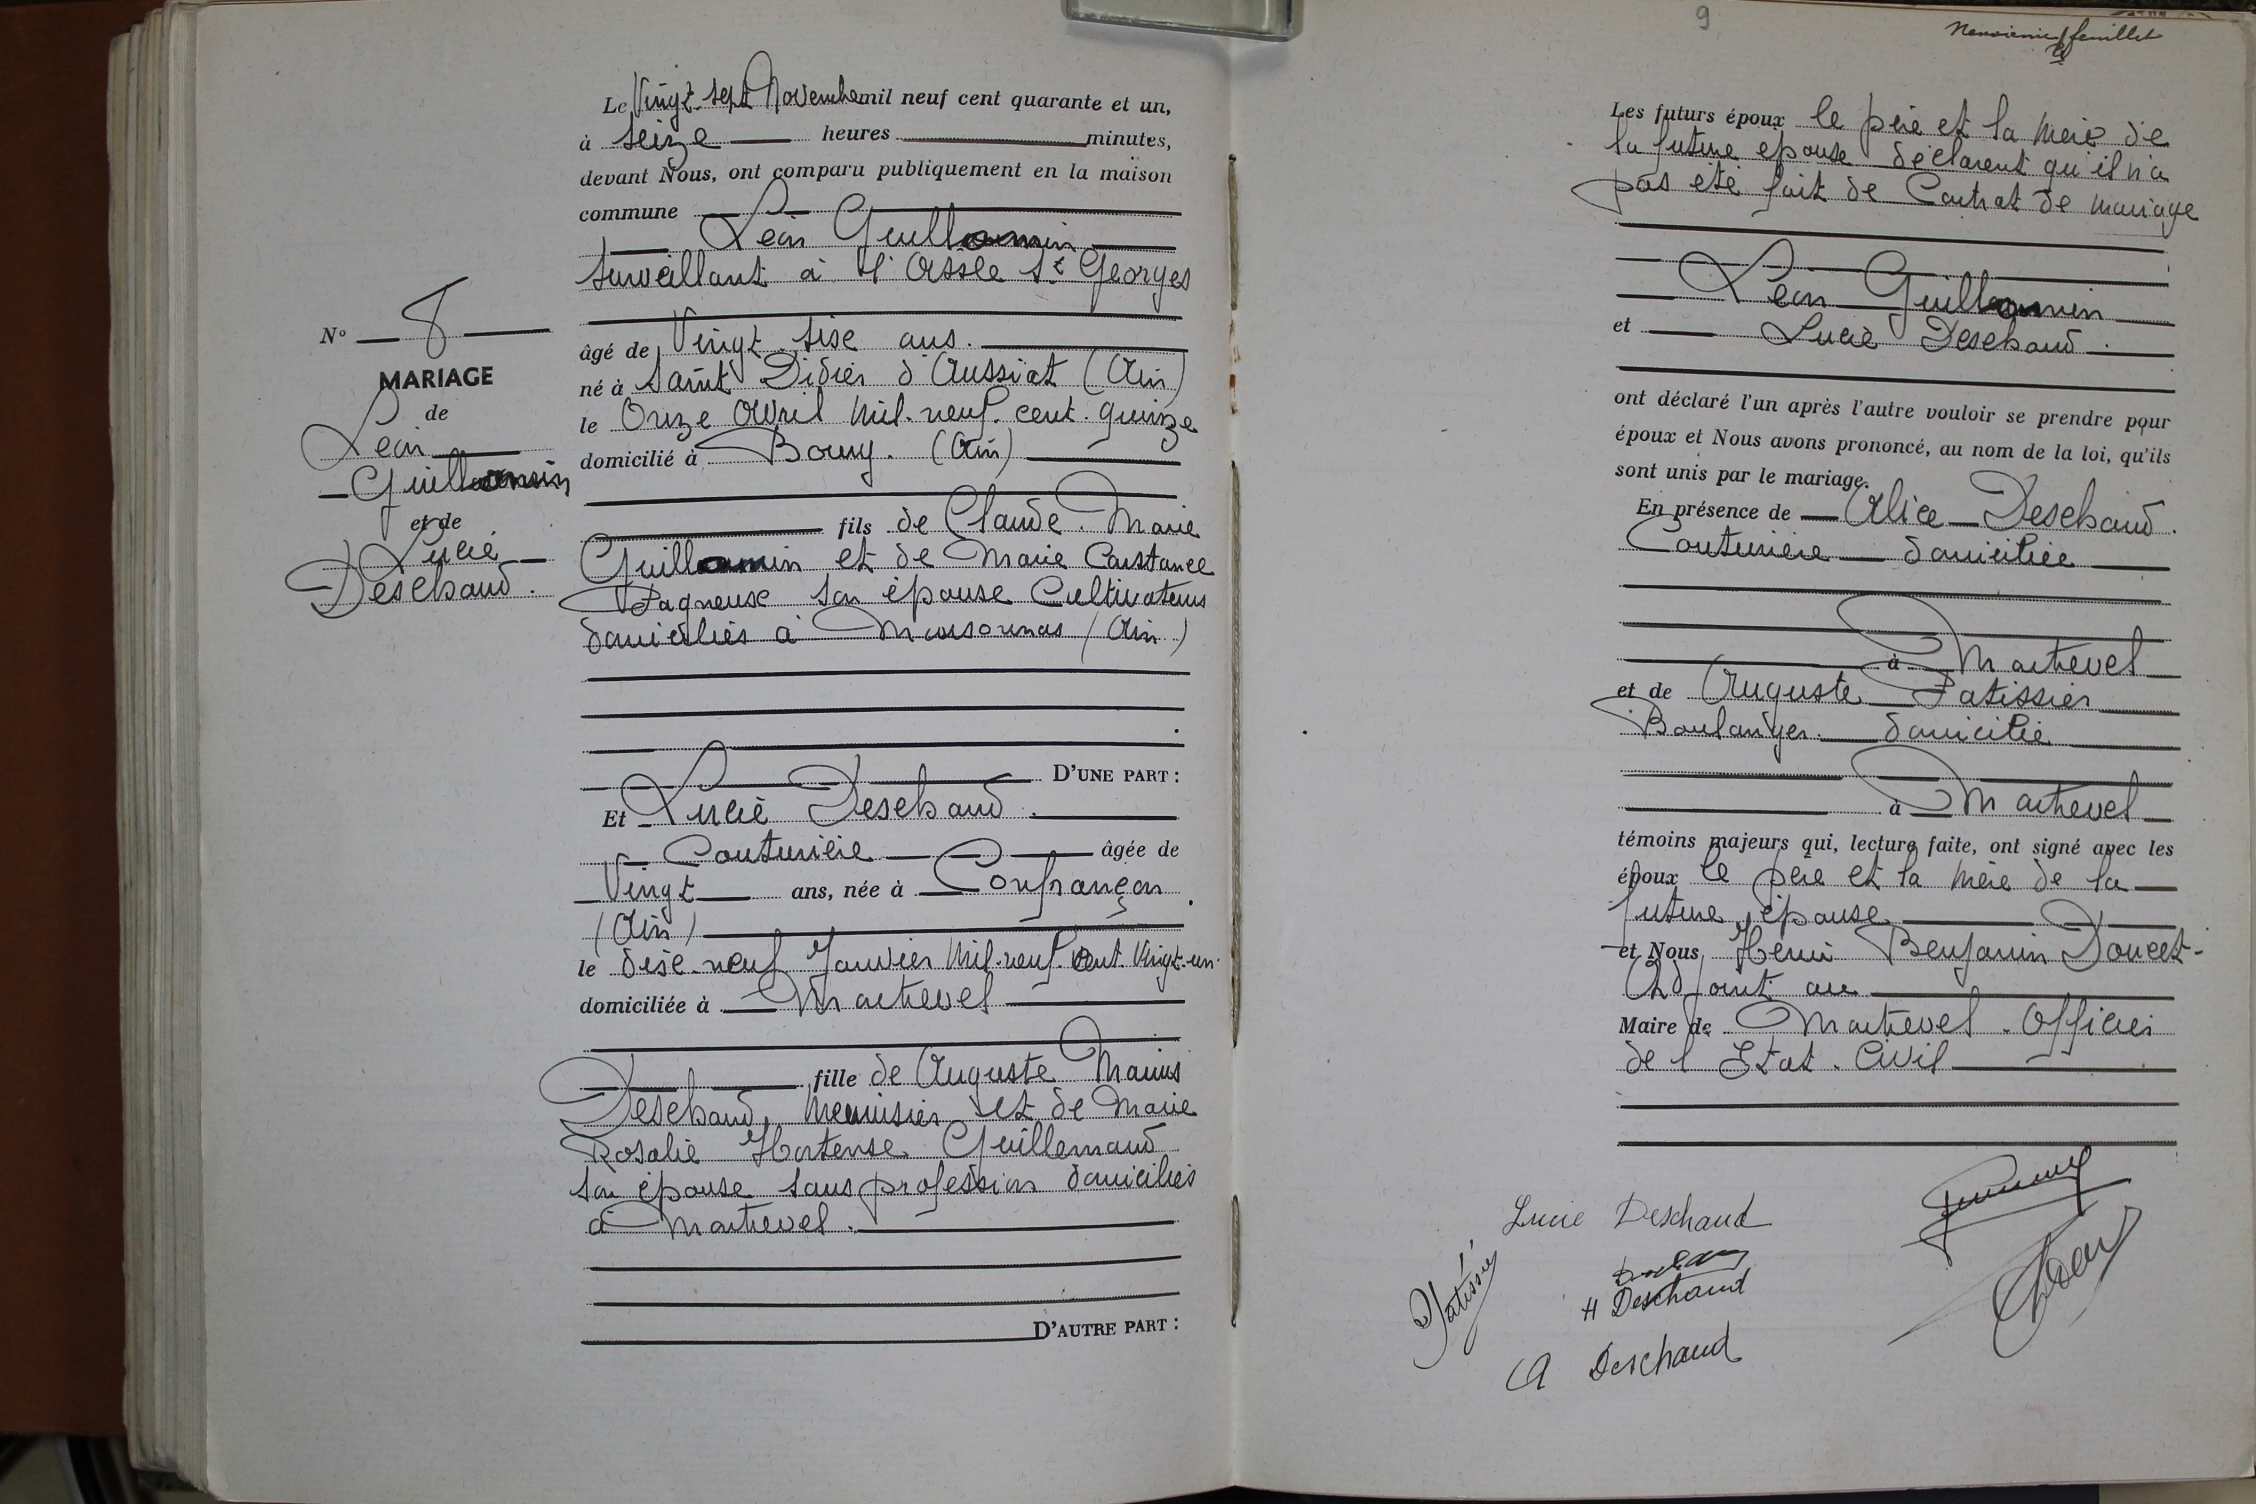 Le Vingt-sept Novembre mil neuf cent quarante et un,
à seize heures minutes,
devant Nous, ont comparu publiquement en la maison
commune
Léon Guillaumin
surveillant à l'Assle St Georges
N° 8
MARIAGE
de
Léon
Guillaumin
et de
Lucie
Deschaud.
âgé de Vingt-sise ans.
né à Saint Didier d'Aussiat (Ain)
le Onze Avril mil-neuf-cent-quinze
domicilié à Bourg. (Ain)
fils de Claude-Marie
Guillaumin et de Marie Constance
Pagneuse son épouse Cultivateurs
domiciliés à Marsonnas (Ain)
D'UNE PART :
Et Lucie Deschaud.
Couturière âgée de
Vingt ans, née à Confrançon
(Ain)
le dise-neuf Janvier mil-neuf-cent-Vingt-un.
domiciliée à Montrevel
fille de Auguste Marius
Deschaud, Menuisier et de Marie
Rosalie Hortense Guillemaud
son épouse sans profession domiciliés
à Montrevel.
D'AUTRE PART :
9
Neuvième feuillet
Les futurs époux le père et la mère de
la future épouse déclarent qu'il n'a
pas été fait de Contrat de mariage
Léon Guillaumin
et Lucie Deschaud.
ont déclaré l'un après l'autre vouloir se prendre pour
époux et Nous avons prononcé, au nom de la loi, qu'ils
sont unis par le mariage.
En présence de Alice Deschaud.
Couturière domiciliée
à Montrevel
et de Auguste Patissier
Boulanger. domicilié
à Montrevel
témoins majeurs qui, lecture faite, ont signé avec les
époux le père et la mère de la
future épouse
et Nous, Henri Benjamin Doucet-
Adjoint au
Maire de Montrevel. Officier
de l'Etat-Civil
Lucie Deschaud
Patissier
H Deschaud
A Deschaud